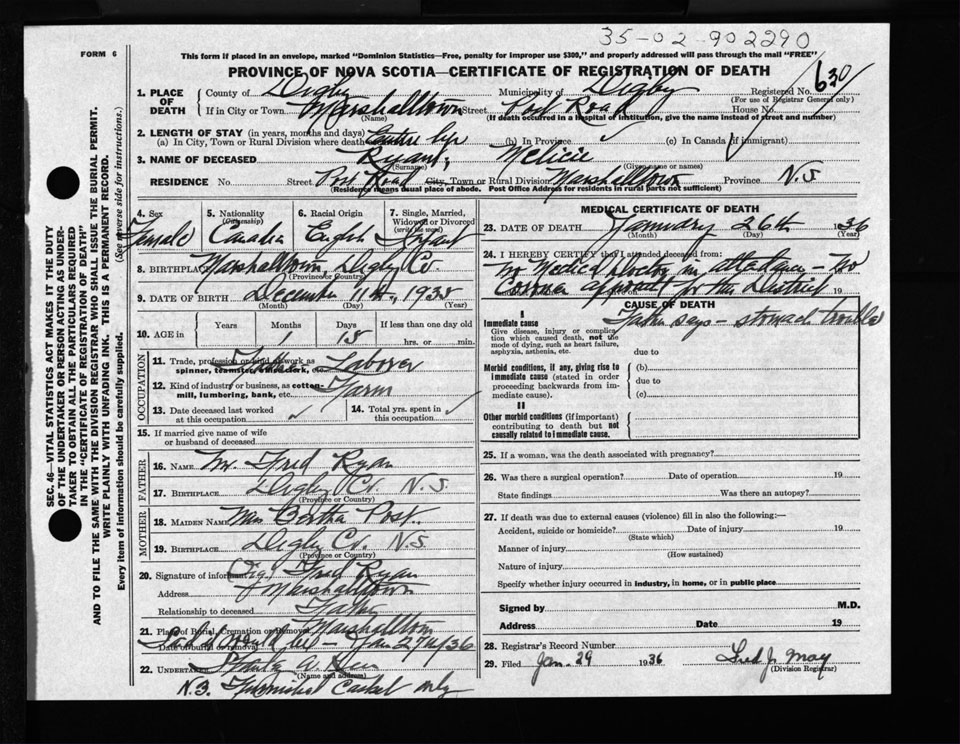 35-02-902290
FORM 6
This form if placed in an envelope, marked "Dominion Statistics—Free, penalty for improper use $300," and properly addressed will pass through the mail "FREE"
PROVINCE OF NOVA SCOTIA—CERTIFICATE OF REGISTRATION OF DEATH
630
1. PLACE OF DEATH
County of Digby Municipality of Digby Registered No.
(For use of Registrar General only)
If in City or Town Marshalltown Street Post Road House No.
(Name) (If death occurred in a hospital or institution, give the name instead of street and number)
2. LENGTH OF STAY (in years, months and days)
(a) In City, Town or Rural Division where death Entire life (b) In Province (c) In Canada (if immigrant)
3. NAME OF DECEASED Ryan, Melicie
(Surname) (Given name or names)
RESIDENCE No. Street Post Road City, Town or Rural Division Marshalltown Province N.S
(Residence means usual place of abode. Post Office Address for residents in rural parts not sufficient)
4. Sex Female
5. Nationality (Citizenship) Canadia
6. Racial Origin English
7. Single, Married, Widowed or Divorced (write the word) Infant
8. BIRTHPLACE Marshalltown Digby Co.
(Province or Country)
9. DATE OF BIRTH December 11th, 1935
(Month) (Day) (Year)
10. AGE in Years Months 1 Days 15 If less than one day old hrs. or min.
OCCUPATION
11. Trade, profession or kind of work as spinner, teamster, office clerk, etc. Father Laborer
12. Kind of industry or business, as cotton-mill, lumbering, bank, etc. Farm
13. Date deceased last worked at this occupation
14. Total yrs. spent in this occupation
15. If married give name of wife or husband of deceased
FATHER
16. NAME Mr. Fred Ryan
17. BIRTHPLACE Digby Co. N.S.
(Province or Country)
MOTHER
18. MAIDEN NAME Miss Bertha Post.
19. BIRTHPLACE Digby Co. N.S
(Province or Country)
20. Signature of informant (Sig) Fred Ryan
Address Marshalltown
Relationship to deceased Father
21. Place of Burial, Cremation or Removal Marshalltown
Date of burial or removal Jan 27th/36
22. UNDERTAKER
(Name and address)
N.B. Furnished Casket only
MEDICAL CERTIFICATE OF DEATH
23. DATE OF DEATH January 26th 1936
(Month) (Day) (Year)
24. I HEREBY CERTIFY that I attended deceased from:
No Medical Doctor in attendance — No
Coroner appointed for this District 19
CAUSE OF DEATH
I
Immediate cause Father says - stomach trouble
Give disease, injury or complication which caused death, not the mode of dying, such as heart failure, asphyxia, asthenia, etc.
due to
Morbid conditions, if any, giving rise to immediate cause (stated in order proceeding backwards from immediate cause).
(b)
due to
(c)
II
Other morbid conditions (if important) contributing to death but not causally related to immediate cause.
25. If a woman, was the death associated with pregnancy?
26. Was there a surgical operation? Date of operation 19
State findings Was there an autopsy?
27. If death was due to external causes (violence) fill in also the following:—
Accident, suicide or homicide? Date of injury 19
(State which)
Manner of injury
(How sustained)
Nature of injury
Specify whether injury occurred in industry, in home, or in public place
Signed by M.D.
Address Date 19
28. Registrar's Record Number
29. Filed Jan. 29 1936 Fred J. May
(Division Registrar)
SEC. 46—VITAL STATISTICS ACT MAKES IT THE DUTY
OF THE UNDERTAKER OR PERSON ACTING AS UNDERTAKER TO OBTAIN ALL THE PARTICULARS REQUIRED
IN THE "CERTIFICATE OF REGISTRATION OF DEATH"
AND TO FILE THE SAME WITH THE DIVISION REGISTRAR WHO SHALL ISSUE THE BURIAL PERMIT.
WRITE PLAINLY WITH UNFADING INK. THIS IS A PERMANENT RECORD.
Every item of information should be carefully supplied. (See reverse side for instructions.)